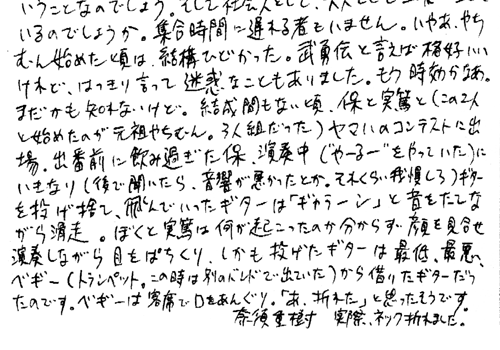 いうことなのでしょう。そして社会人として、大人として
いるのでしょうか。集合時間に遅れる者もいません。いやあ、やち
むん始めた頃は、結構ひどかった。武勇伝と言えば格好いい
けれど、はっきり言って迷惑なこともありました。もう時効かなあ。
まだかも知れないけど。結成間もない頃、保と実篤と(この2人
と始めたのが元祖やちむん。3人組だった)ヤマハのコンテストに出
場。出番前に飲み過ぎた保、演奏中(“やーるー”をやっていた)に
いきなり(後で聞いたら、音響が悪かったとか。それくらい我慢しろ)ギター
を投げ捨て、飛んでいったギターは「ギュラーン」と音をたてな
がら滑走。ぼくと実篤は何が起こったのか分からず顔を見合せ
演奏しながら目をぱちくり、しかも投げたギターは最低、最悪、
ベギー(トランペット。この時は別のバンドで出ていた)から借りたギターだっ
たのです。ベギーは客席で口をあんぐり。「あ、折れた」と思ったそうです。
奈須重樹 実際、ネック折れました。